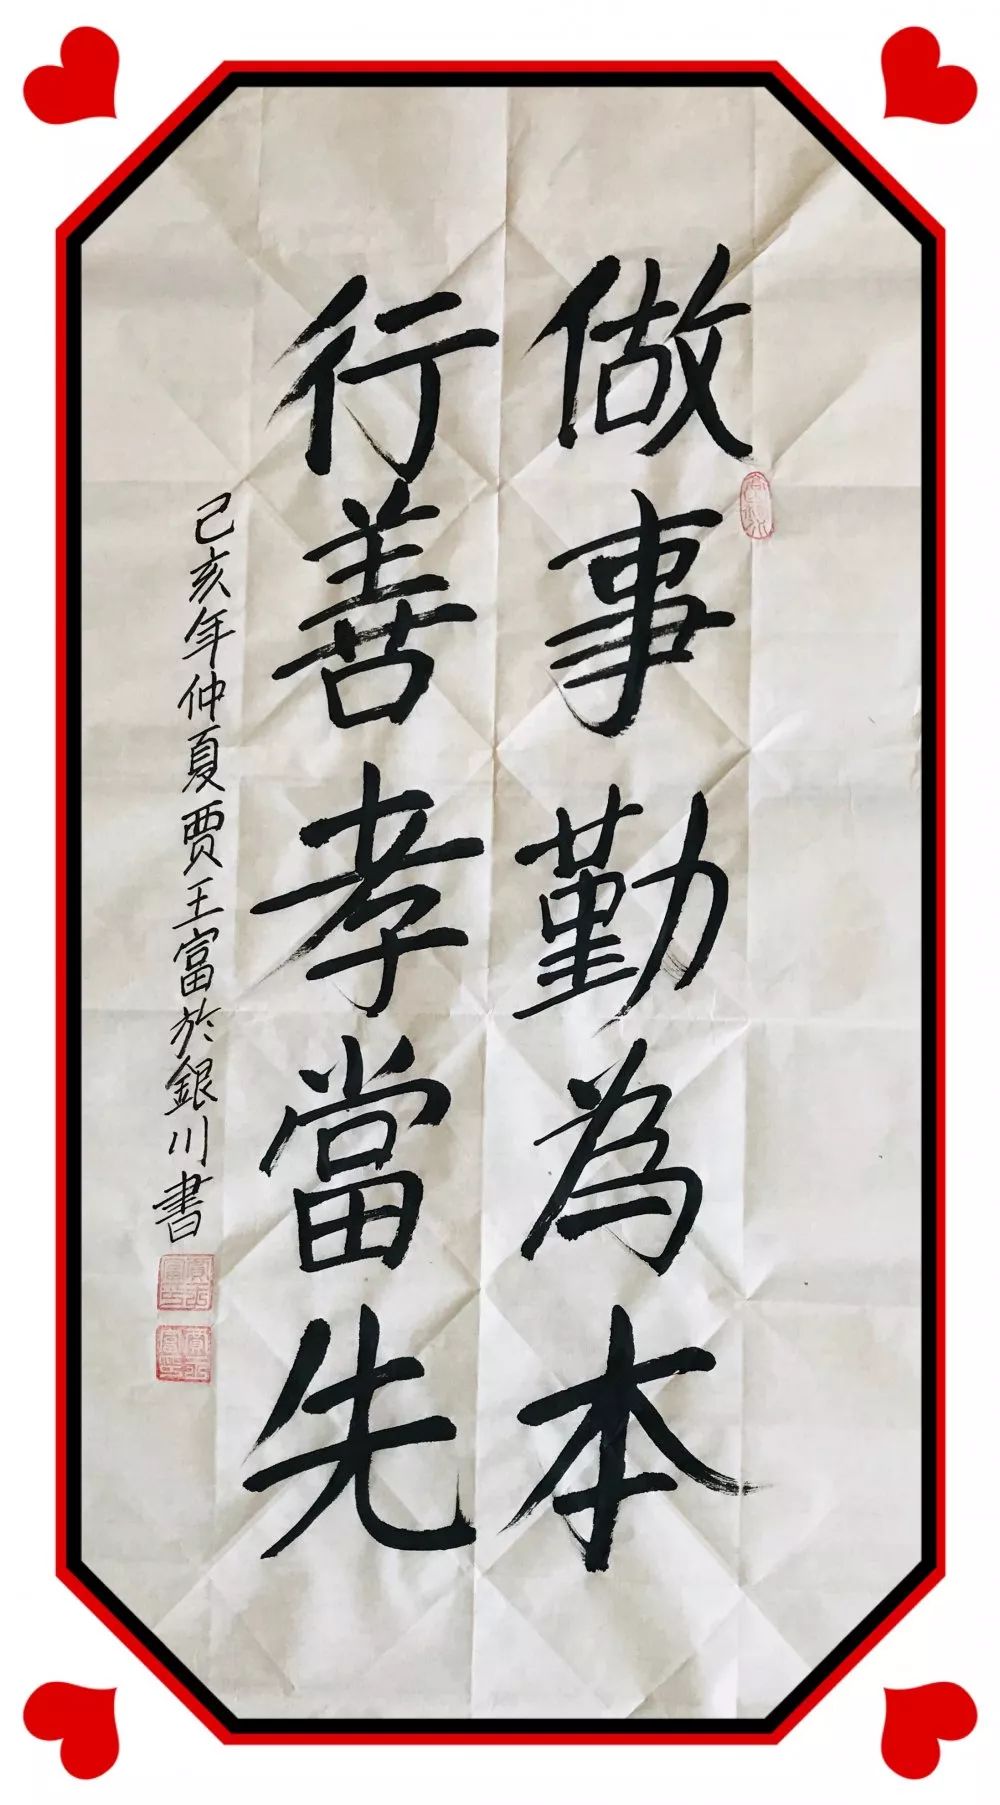 做事勤為本
行善孝當先
己亥年仲夏賈王富於銀川書